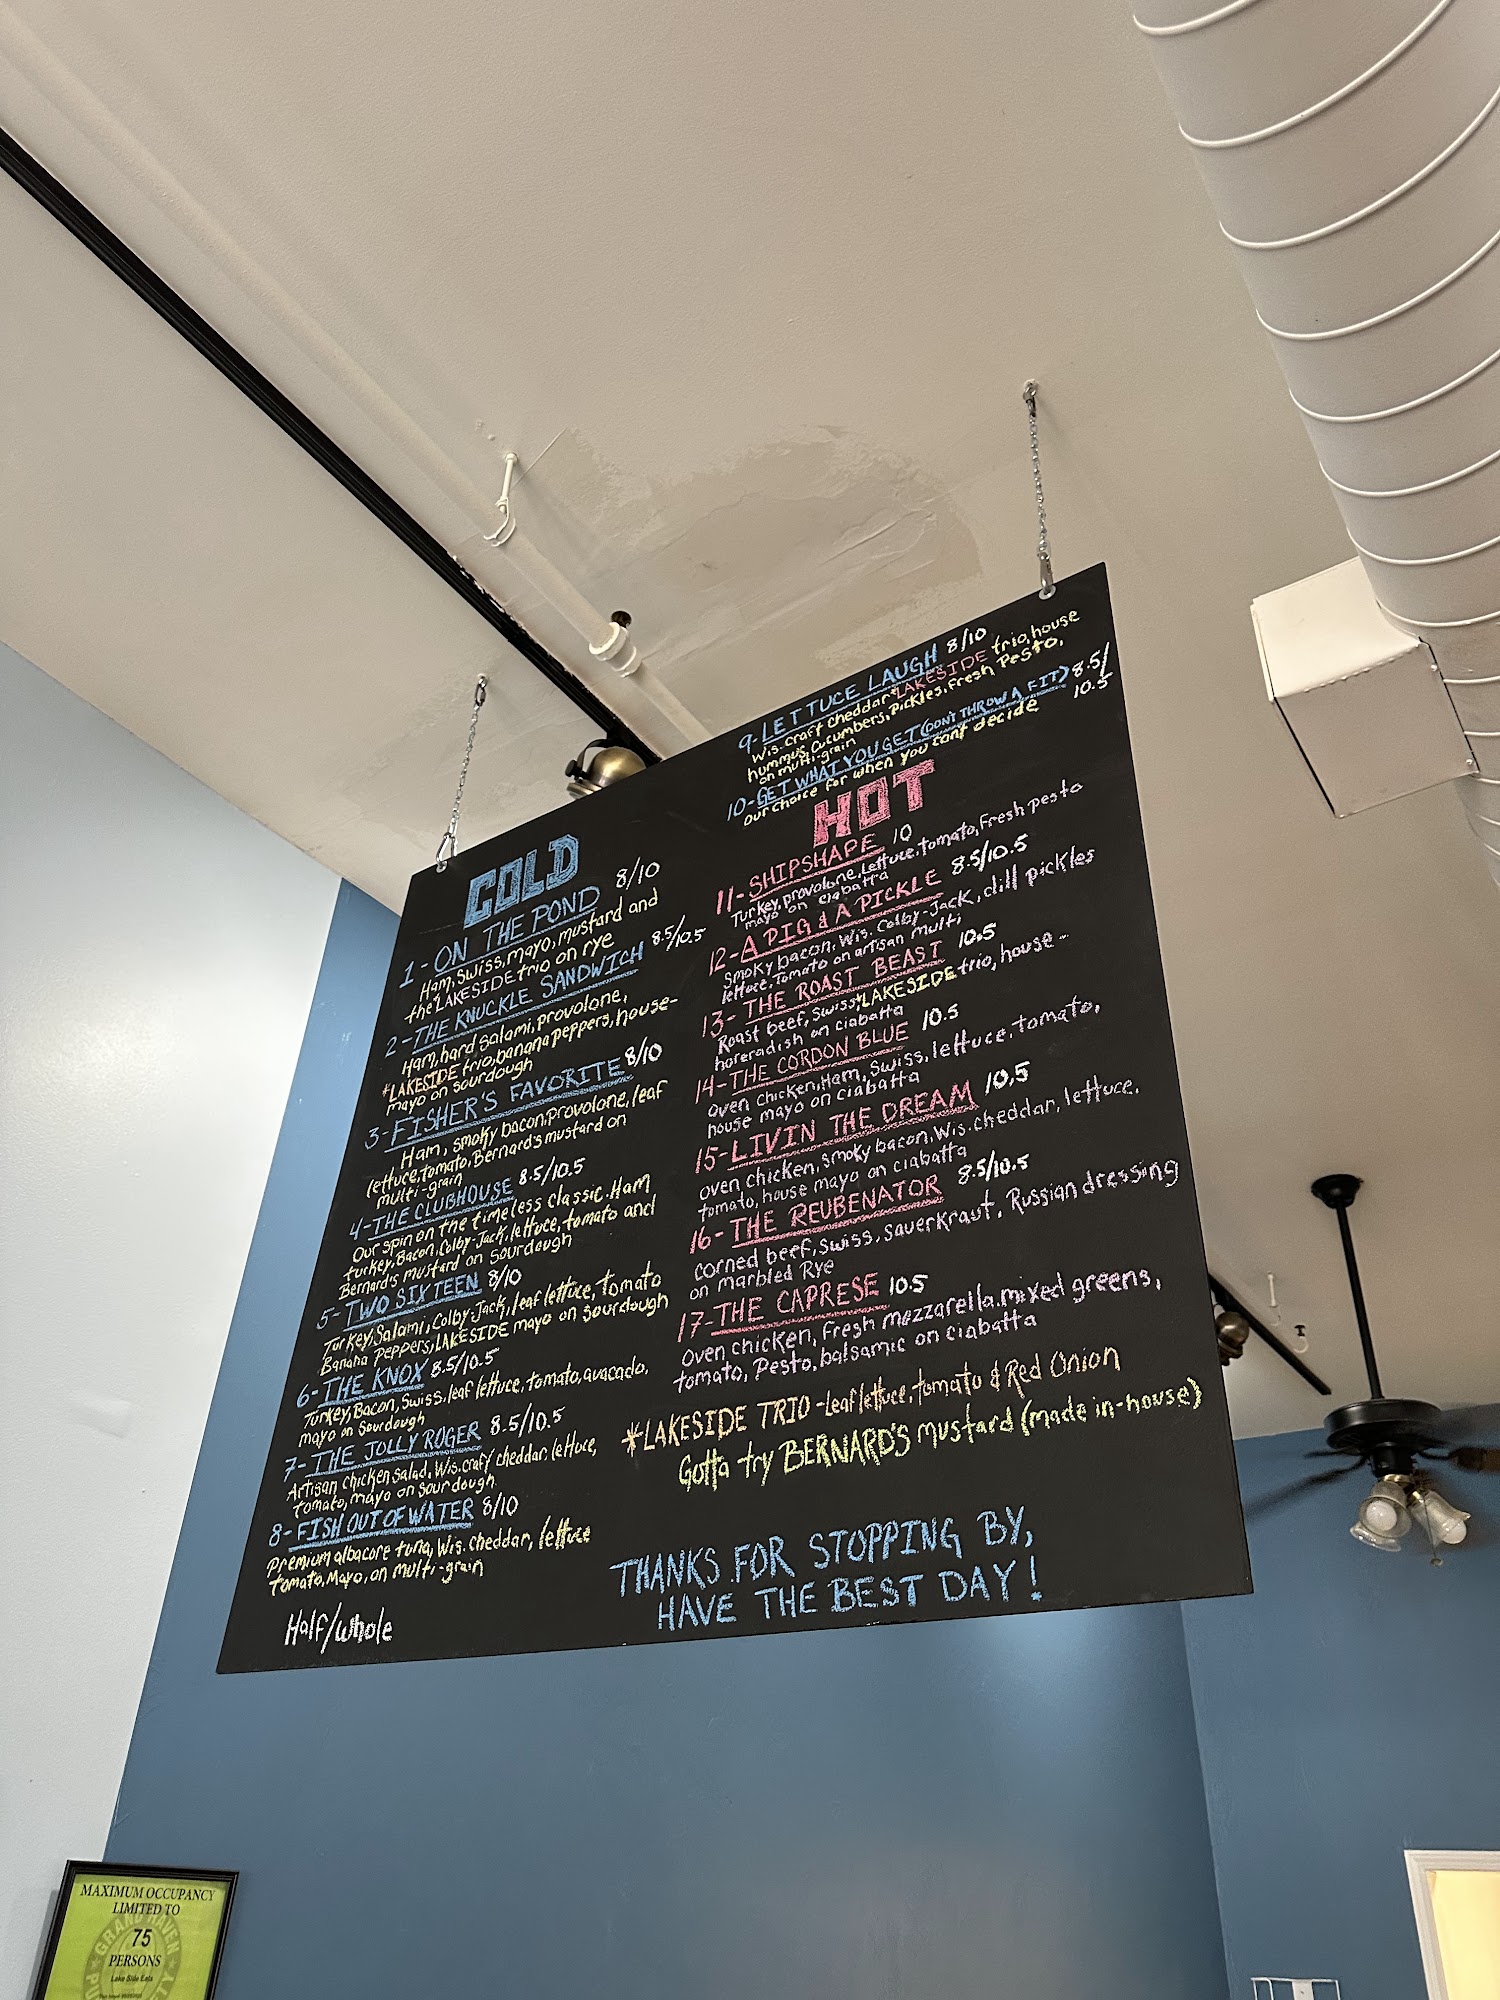 COLD
1-ON THE POND 8/10
Ham, swiss, mayo, mustard and
the LAKESIDE trio on rye
2-THE KNUCKLE SANDWICH 8.5/10.5
Ham, hard salami, provolone,
*LAKESIDE trio, banana peppers, house-
mayo on sourdough
3-FISHER'S FAVORITE 8/10
Ham, smoky bacon, provolone, leaf
lettuce, tomato, Bernard's mustard on
multi-grain
4-THE CLUBHOUSE 8.5/10.5
Our spin on the timeless classic. Ham
turkey, Bacon, Colby-Jack, lettuce, tomato and
Bernard's mustard on sourdough
5-TWO SIXTEEN 8/10
Turkey, Salami, Colby-Jack, leaf lettuce, tomato
Banana Peppers, LAKESIDE mayo on sourdough
6-THE KNOX 8.5/10.5
Turkey, Bacon, Swiss, leaf lettuce, tomato, avacado,
mayo on sourdough
7-THE JOLLY ROGER 8.5/10.5
Artisan chicken salad, Wis. craft cheddar, lettuce,
tomato, mayo on sourdough
8-FISH OUT OF WATER 8/10
Premium albacore tuna, Wis. cheddar, lettuce
tomato, Mayo, on multi-grain
Half/whole
9-LETTUCE LAUGH 8/10
Wis. craft cheddar *LAKESIDE trio, house
hummus, cucumbers, pickles, fresh Pesto,
on multi-grain
10-GET WHAT YOU GET (DON'T THROW A FIT) 8.5/
10.5
our choice for when you cant decide
HOT
11-SHIPSHAPE 10
Turkey, provolone, Lettuce, tomato, Fresh pesto
mayo on ciabatta
12-A PIG & A PICKLE 8.5/10.5
Smoky bacon, Wis. Colby-Jack, dill pickles
lettuce, tomato on artisan multi
13-THE ROAST BEAST 10.5
Roast beef, swiss *LAKESIDE trio, house-
horeradish on ciabatta
14-THE CORDON BLUE 10.5
oven chicken, Ham, Swiss, lettuce, tomato,
house mayo on ciabatta
15-LIVIN THE DREAM 10.5
oven chicken, smoky bacon, Wis. cheddar, lettuce,
tomato, house mayo on ciabatta
16-THE REUBENATOR 8.5/10.5
corned beef, swiss, sauerkraut, Russian dressing
on marbled Rye
17-THE CAPRESE 10.5
Oven chicken, fresh mezzarella, mixed greens,
tomato, Pesto, balsamic on ciabatta
*LAKESIDE TRIO-Leaf lettuce, tomato & Red Onion
Gotta try BERNARD'S mustard (made in-house)
THANKS FOR STOPPING BY,
HAVE THE BEST DAY!
MAXIMUM OCCUPANCY
LIMITED TO
75
PERSONS
GRAND HAVEN
Lake Side Eats